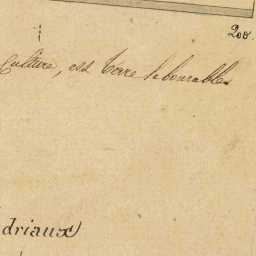 200.
Culture, est terre labourable
driaux